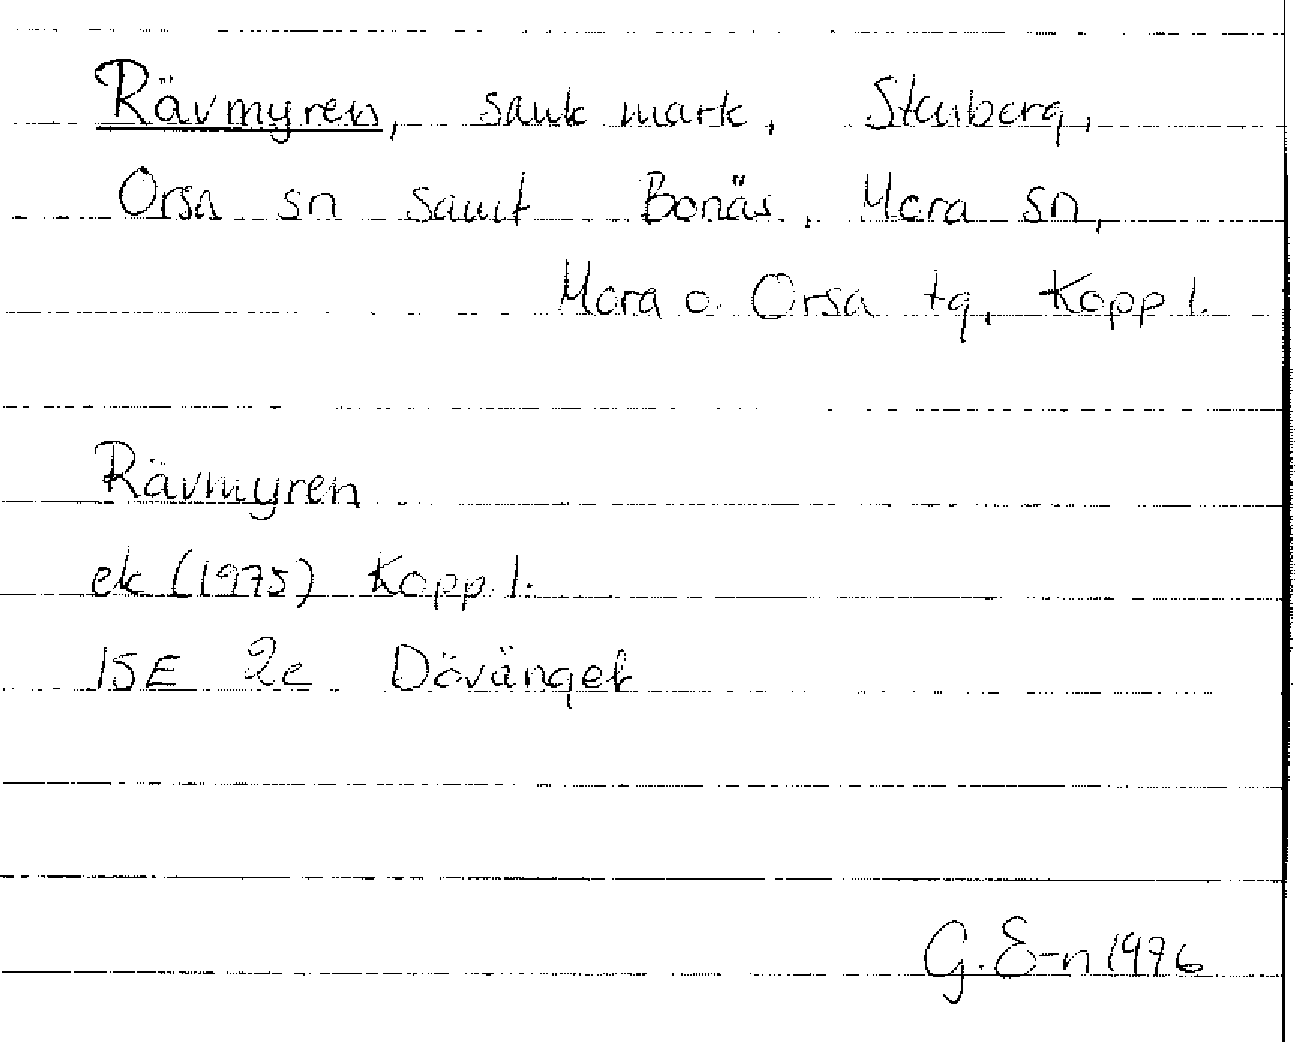 Rävmyren, sank mark, Stenberg,
Orsa sn samt Bonäs, Mora sn,
Mora o. Orsa tg, Kopp l.
Rävmyren
ek (1975) Kopp. l.
15E 2e Dövänget
G. E-n 1976